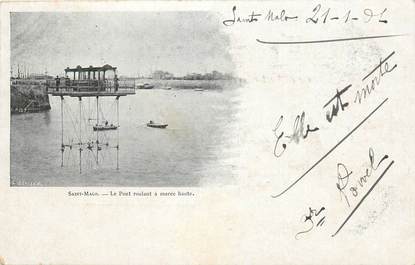 Saint Malo 21-1-02
Elle est morte
SAINT-MALO. — Le Pont roulant à marée haute.